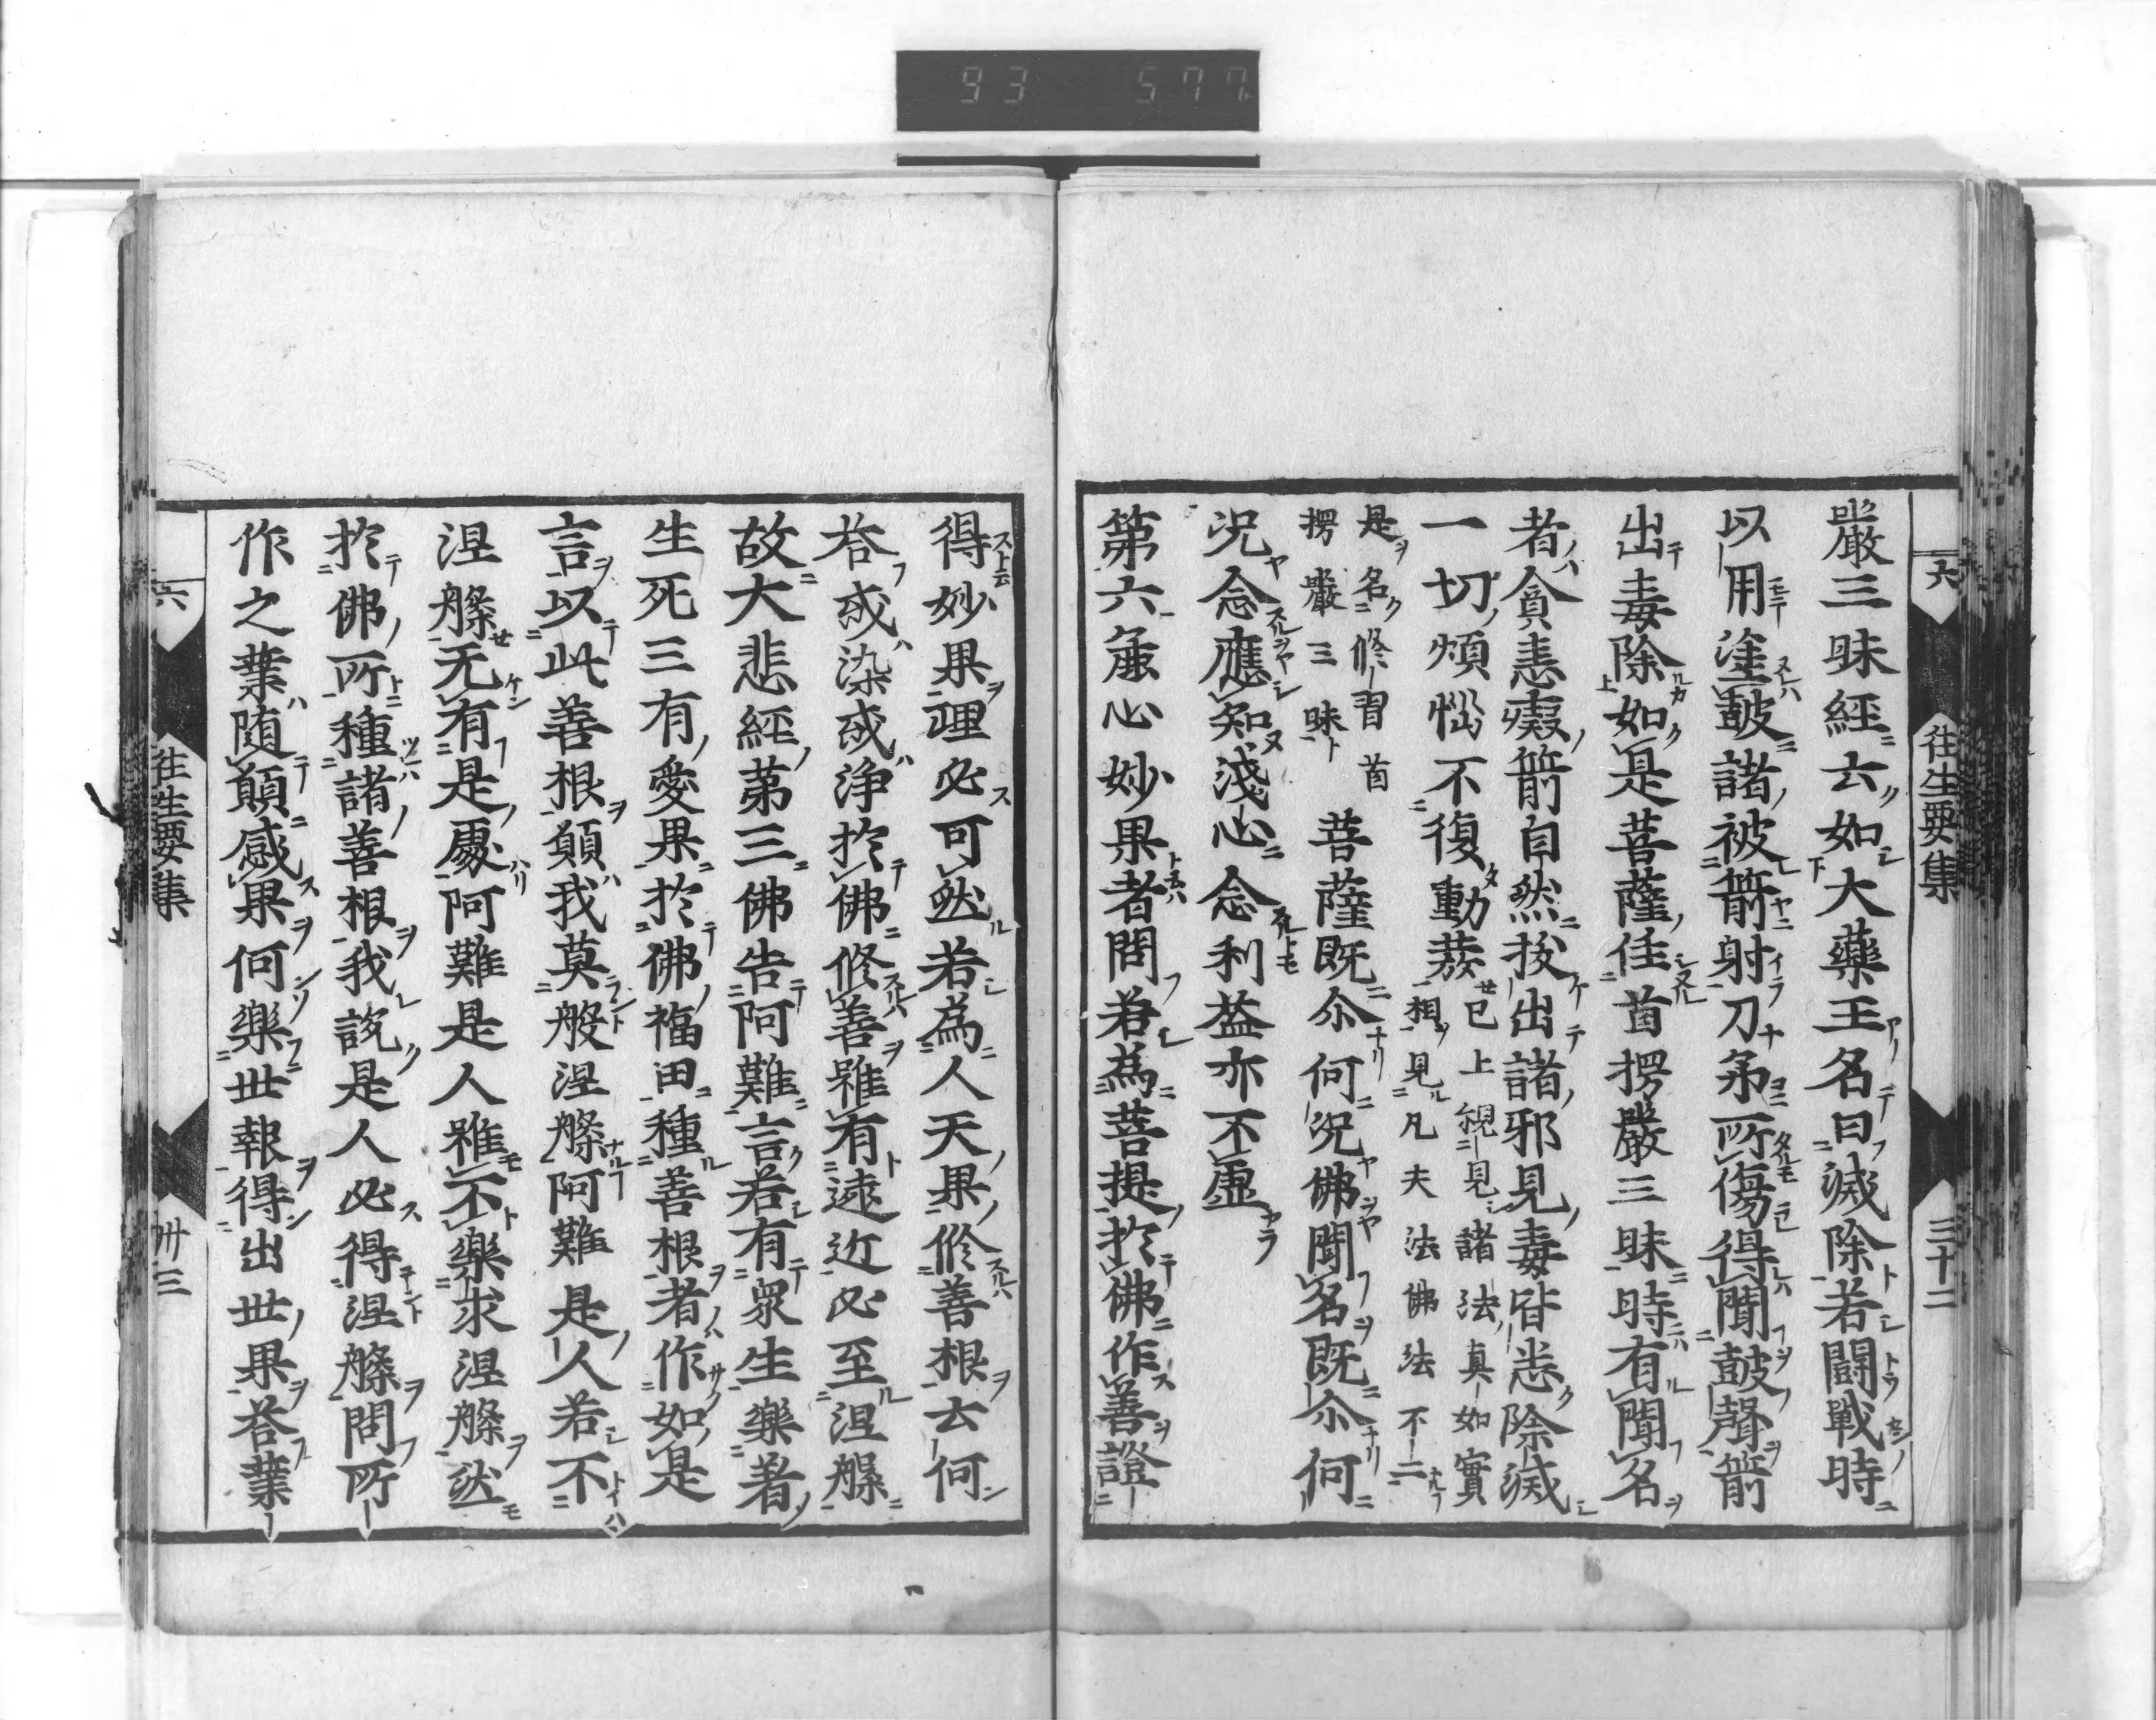 93 577
六 往生要集 三十二
嚴三昧經云如大藥王名曰滅除若闘戰時
以用塗皷諸被箭射刀矛所傷得聞皷聲箭
出毒除如是菩薩住首楞嚴三昧時有聞名
者貪恚癡箭自然拔出諸邪見毒皆悉除滅
一切煩惱不復動發
已上観見諸法真如實
相見凡夫法佛法不二
是名修習首
楞嚴三昧
菩薩既尒何況佛聞名既尒何
況念應知淺心念利益亦不虚
第六麁心妙果者問若為菩提於佛作善證
得妙果理必可然若為人天果修善根云何
荅或染或浄於佛修善雖有遠近必至涅槃
故大悲經第三佛告阿難言若有衆生樂著
生死三有愛果於佛福田種善根者作如是
言以此善根願我莫般涅槃阿難是人若不
涅槃无有是處阿難是人雖不樂求涅槃然
於佛所種諸善根我説是人必得涅槃問所
作之業随願感果何樂世報得出世果荅業
六 往生要集 卅三